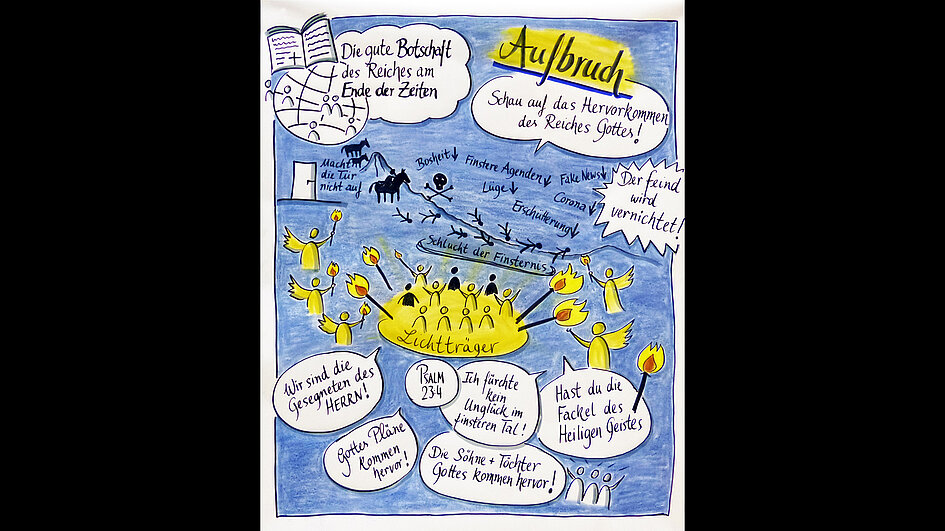 Die gute Botschaft
des Reiches am
Ende der Zeiten
Aufbruch
Schau auf das Hervorkommen
des Reiches Gottes!
Macht
die Tür
nicht auf
Bosheit↓
Finstere Agenden↓
Fake News↓
Lüge↓
Corona↓
Erschütterung↓
Der feind
wird
vernichtet!
Schlucht der Finsternis
Lichtträger
Wir sind die
Gesegneten des
HERRN!
PSALM
23:4
Ich fürchte
kein
Unglück im
finsteren Tal!
Hast du die
Fackel des
Heiligen Geistes
Gottes Pläne
kommen
hervor!
Die Söhne + Töchter
Gottes kommen hervor!